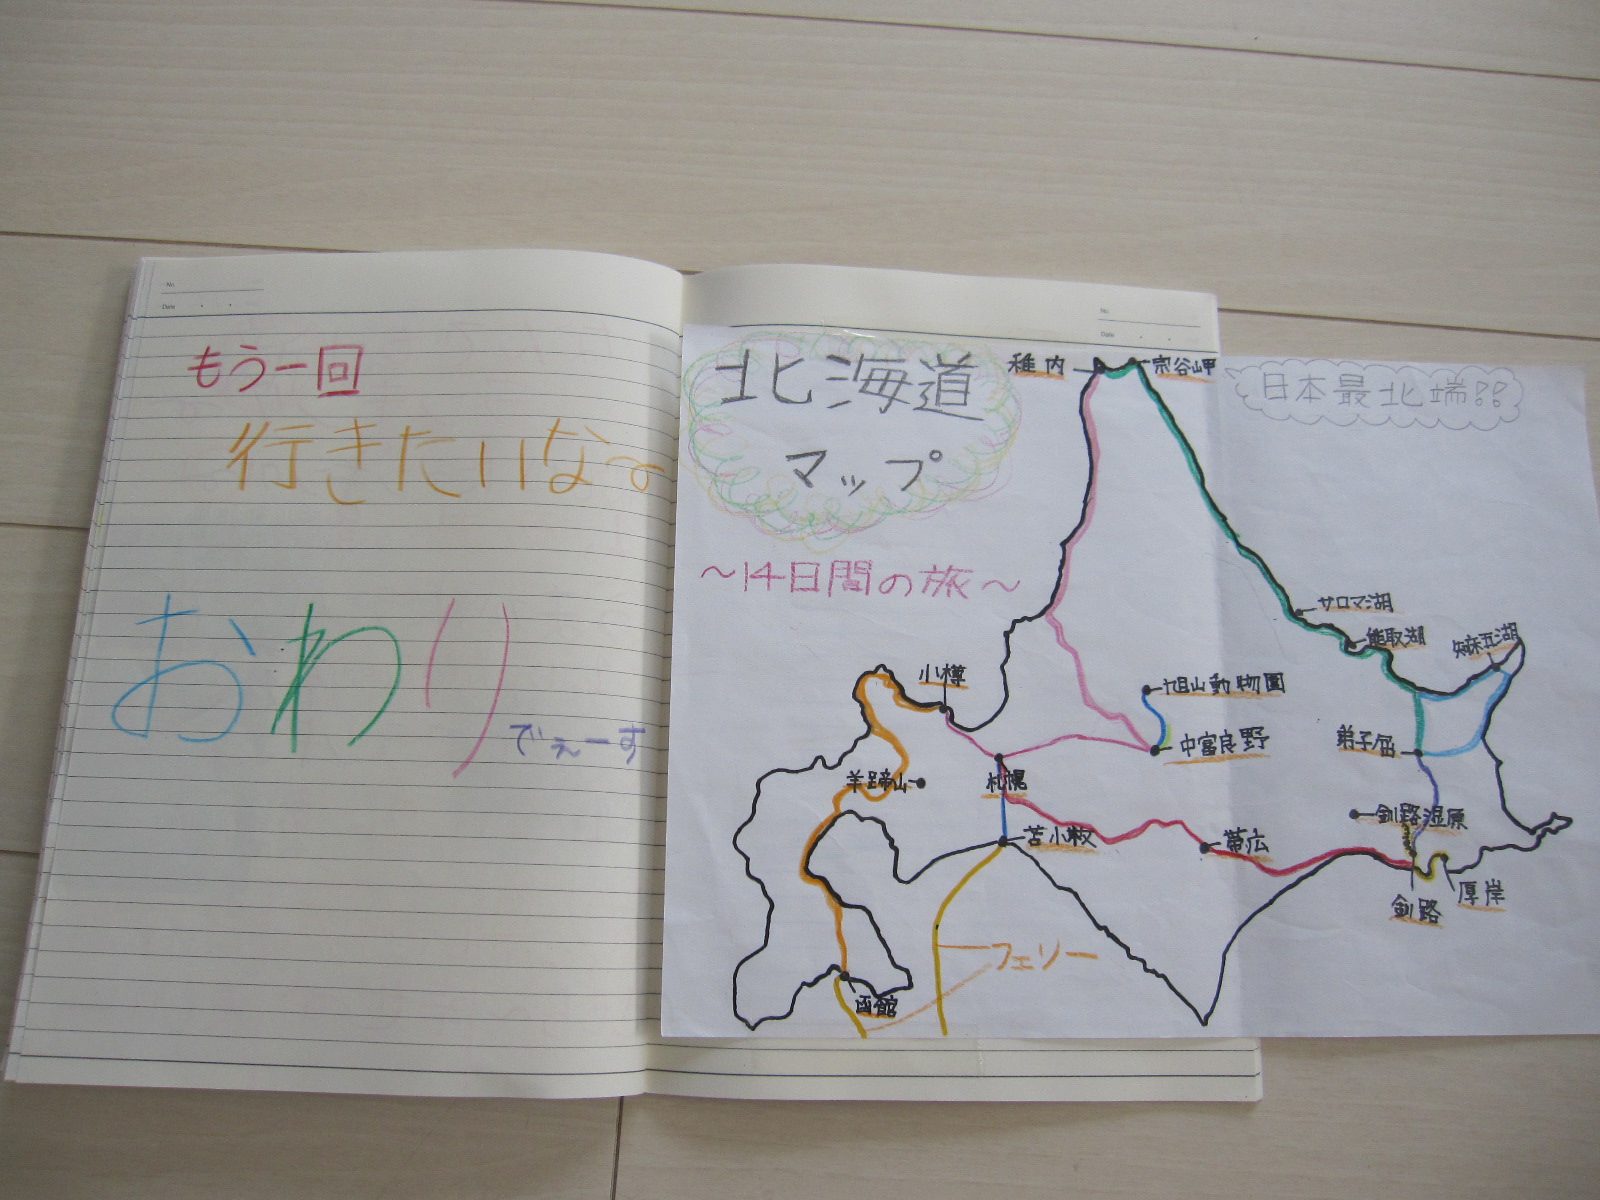 No.
Date
もう一回
行きたいな~
おわり
でぇーす
No.
Date
北海道
マップ
～14日間の旅～
稚内
宗谷岬
日本最北端!!
サロマ湖
能取湖
知床五湖
小樽
旭山動物園
中富良野
弟子屈
羊蹄山
札幌
苫小牧
帯広
釧路湿原
釧路
厚岸
フェリー
函館